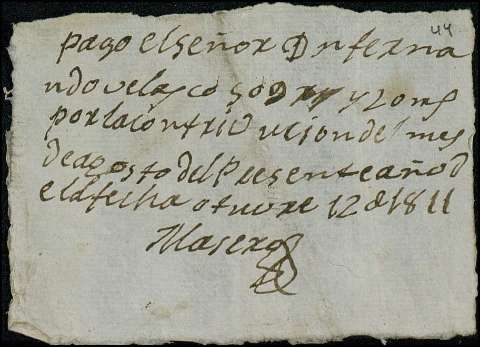 44
pago el señor Dn ferna
ndo velasco
por la contriVucion del mes
de agosto del Presente año d
e la fecha otuvre 12 d 1811
Masero